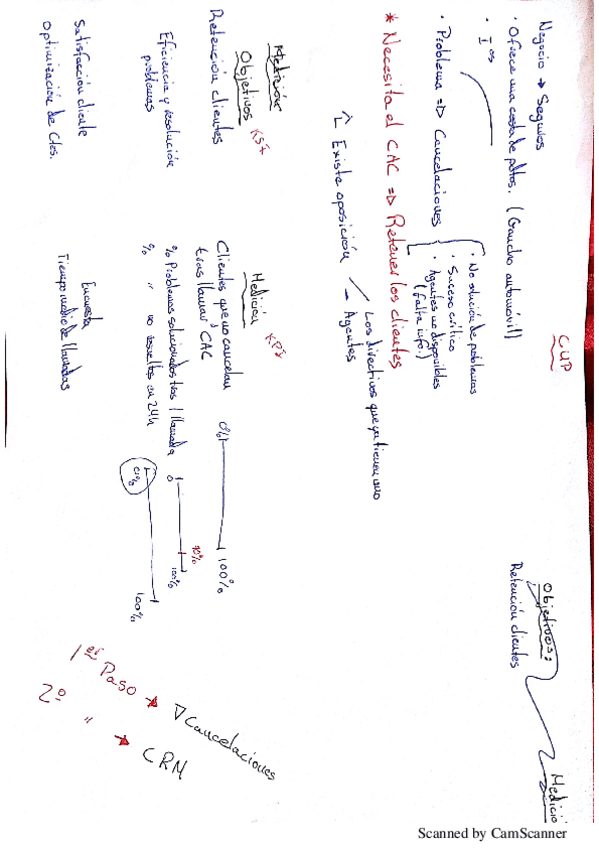 CUP
Negocio → Seguros
· Ofrece una cesta de pdtos. (Gancho automóvil)
· Iºs
· Problema => Cancelaciones
· No solución de problemas
· Suceso crítico
· Agentes no disponibles
(falta info)
* Necesita el CAC => Retener los clientes
Existe oposición
Los directivos que ya tienen uno
Agentes
Medición
Objetivos KSI
Retención clientes
Eficiencia y resolución
problemas
Satisfacción cliente
Optimización de Ctes.
Medición KPI
Clientes que no cancelan
tras llamar CAC
0% 100%
% Problemas solucionados tras 1 llamada
0 90% 100%
% " " no resueltos en 24h
100%
Encuesta
Tiempo medio de llamadas
Objetivos:
Retención clientes
Medició
1er Paso → ∇ Cancelaciones
2º " → CRM
Scanned by CamScanner